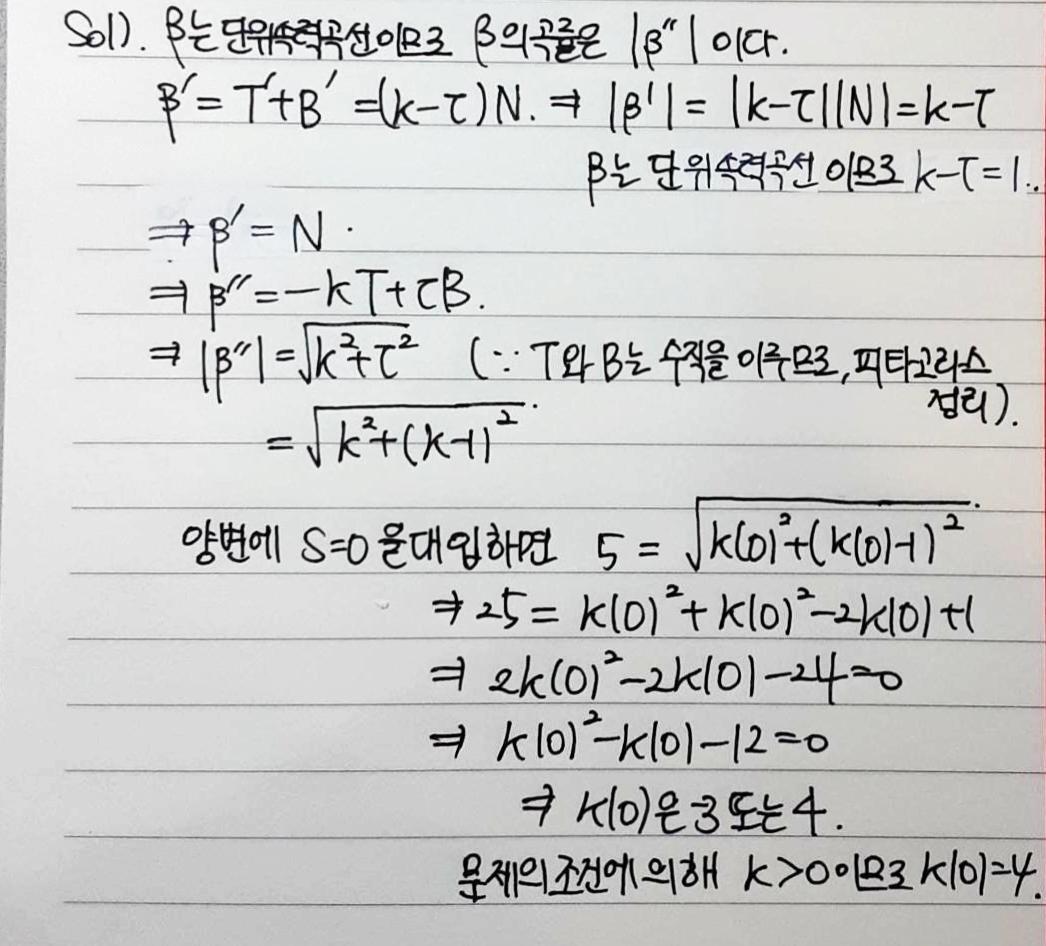 Sol). β는 단위속력곡선이므로 β의 곡률은 |β″| 이다.
β′ = T′+B′ = (k-τ)N. ⇒ |β′| = |k-τ||N| = k-τ
β는 단위속력곡선 이므로 k-τ=1.
⇒ β′ = N.
⇒ β″ = -kT+τB.
⇒ |β″| = √(k²+τ²) (∵ T와 B는 수직을 이루므로, 피타고라스
정리).
= √(k²+(k-1)²)
양변에 s=0을 대입하면 5 = √(k(0)²+(k(0)-1)²)
⇒ 25 = k(0)²+k(0)²-2k(0)+1
⇒ 2k(0)²-2k(0)-24=0
⇒ k(0)²-k(0)-12=0
⇒ k(0)은 -3 또는 4.
문제의 조건에 의해 k>0 이므로 k(0)=4.